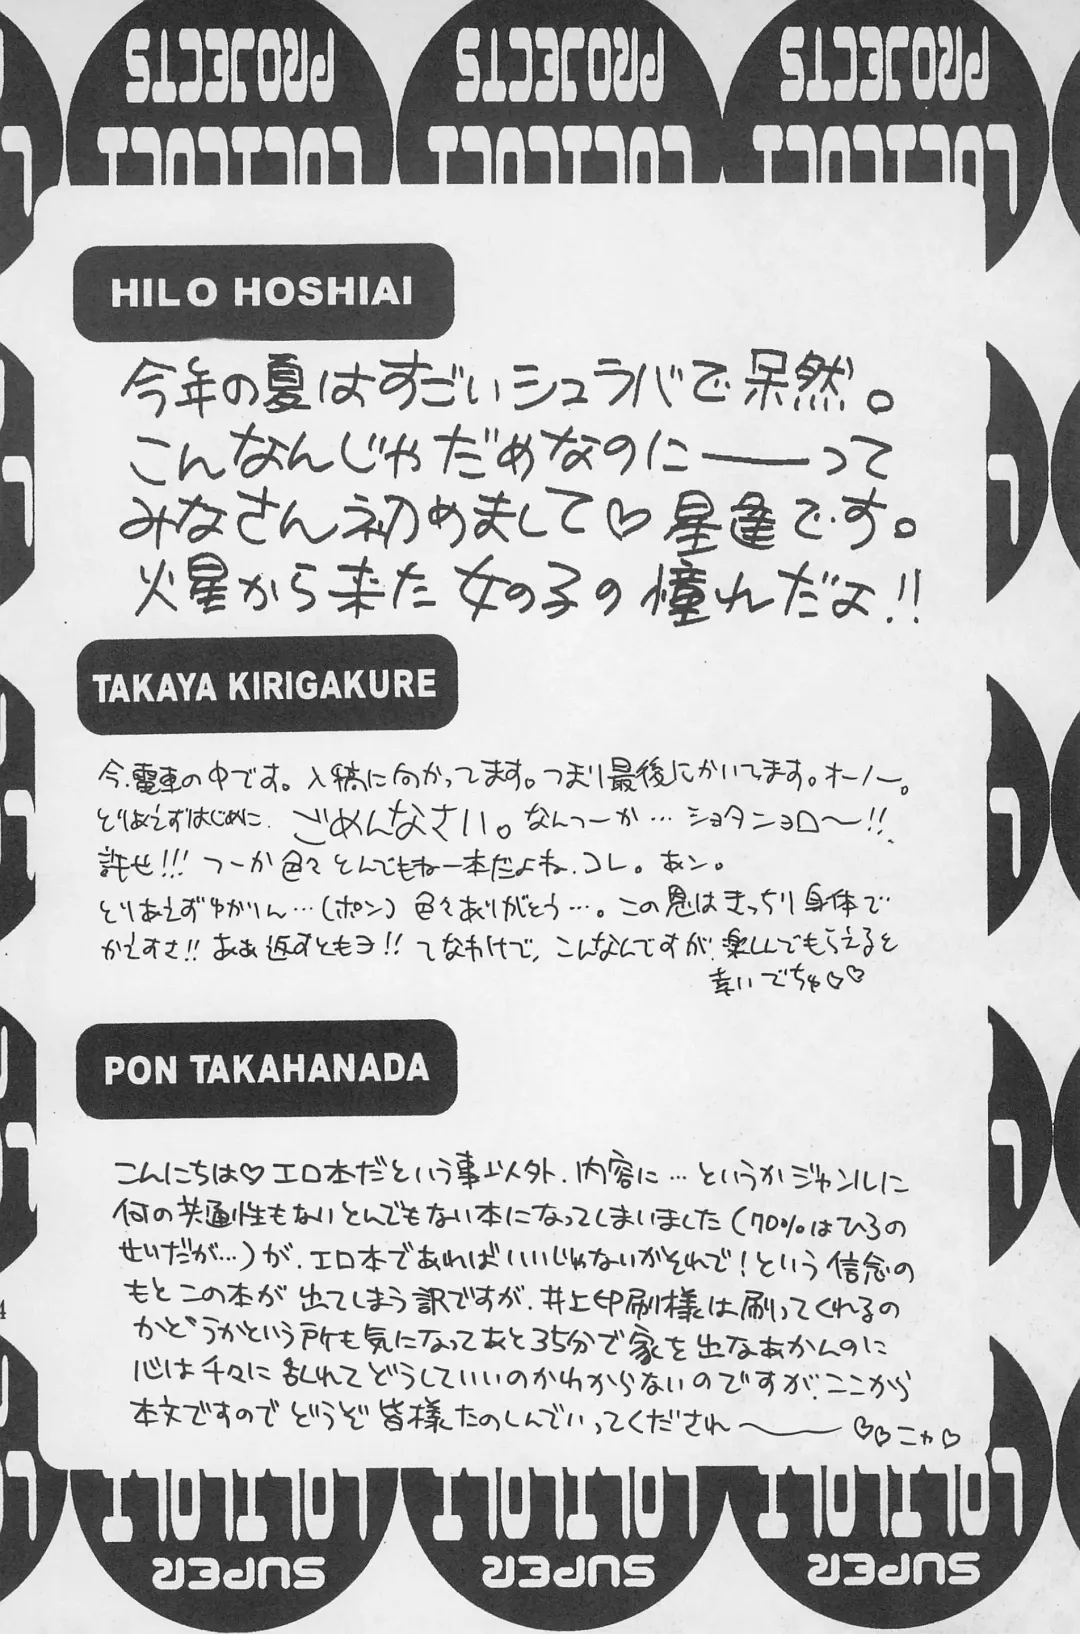 SUPER LOLILOLI PROJECTS
HILO HOSHIAI
今年の夏はすごいシュラバで呆然。
こんなんじゃだめなのに――って
みなさん初めまして♡星逢です。
火星から来た女の子の憧れだよ!!
TAKAYA KIRIGAKURE
今、電車の中です。入稿に向かってます。つまり最後にかいてます。オーノー。
とりあえずはじめに、ごめんなさい。なんつーか…ショタンョロ〜!!
許せ!!! つーか色々とんでもねー本だよね、コレ。あン。
とりあえずゆかりん…(ポン)色々ありがとう…。この恩はきっちり身体で
かえすさ!! ああ返すともヨ!! てなわけで、こんなんですが、楽しんでもらえると
幸いでちゅ♡♡
PON TAKAHANADA
こんにちは♡エロ本だという事以外、内容に…というかジャンルに
何の共通性もないとんでもない本になってしまいました(70%はひろの
せいだが…)が、エロ本であればいいじゃないがそれで!という信念の
もとこの本が出てしまう訳ですが、井上印刷様は刷ってくれるの
かどうかという所も気になってあと35分で家を出なあかんのに
心は千々に乱れてどうしていいのかわからないのですが、ここから
本文ですのでどうぞ皆様たのしんでいってくだされ〜 ♡♡ニャ♡
4